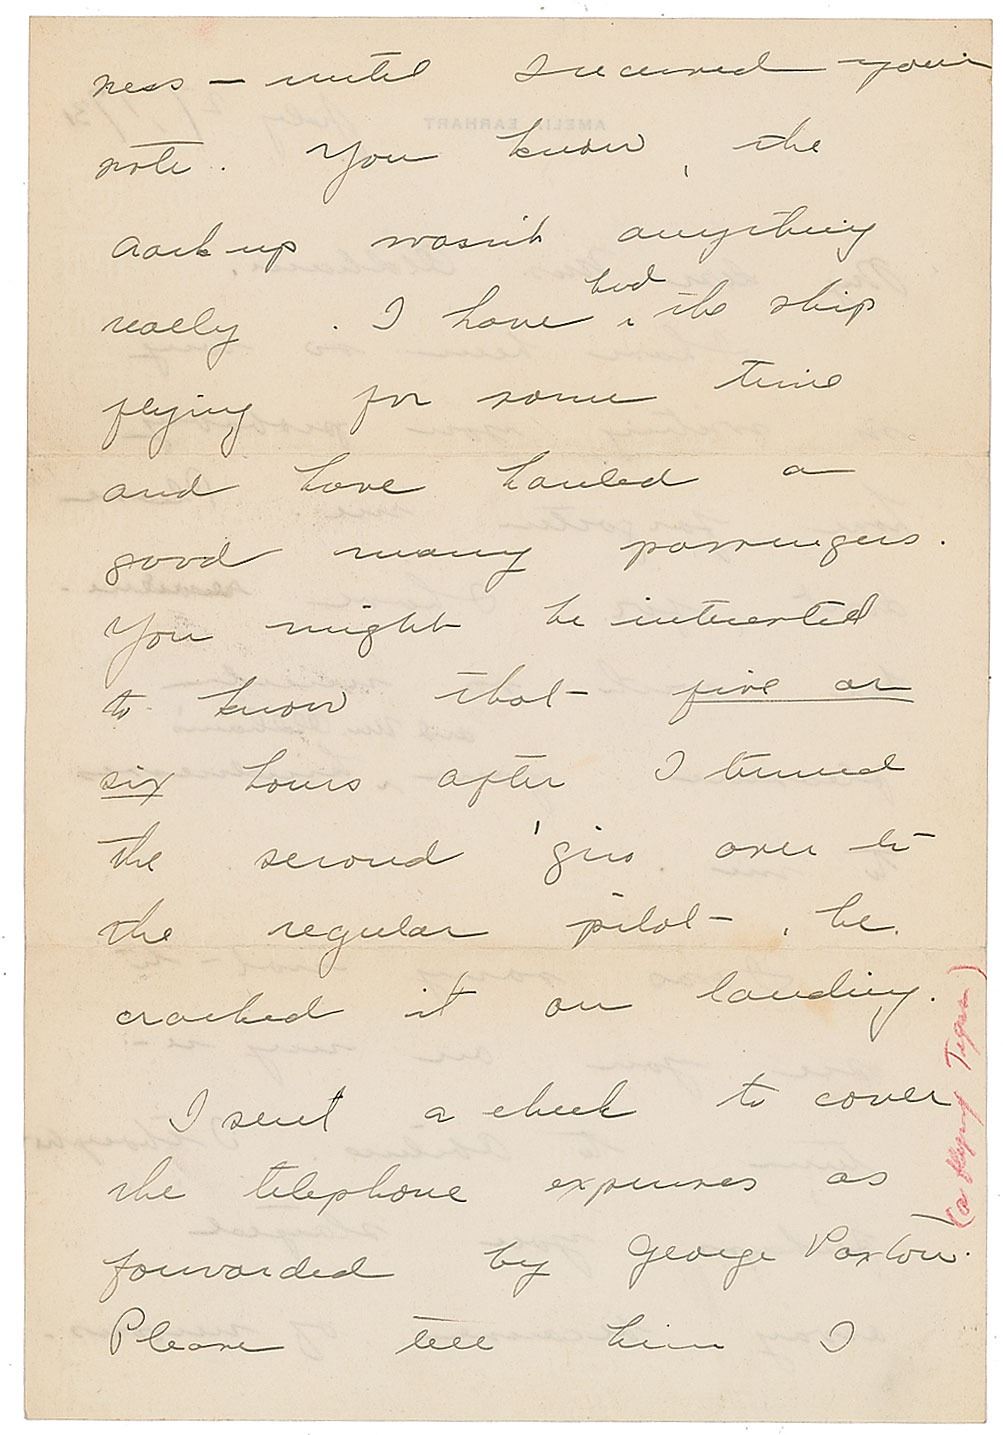 ness – until I received your
note. You know, the
crack up wasn't anything
really. I have had the ship
flying for some time
and have hauled a
good many passengers.
You might be interested
to know that five or
six hours after I turned
the second 'giro over to
the regular pilot, he
cracked it on landing.
I sent a check to cover
the telephone expenses as
forwarded by George Paxton.
Please tell him I
(a flying Tiger)
AMELIA EARHART